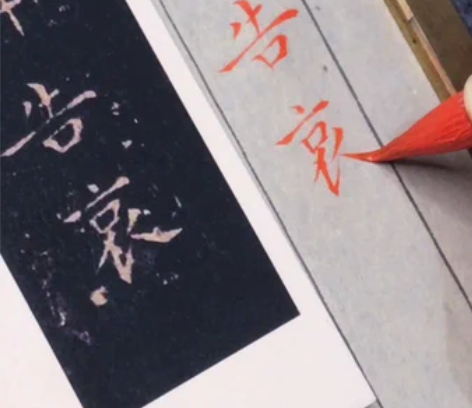 告
哀
告
哀